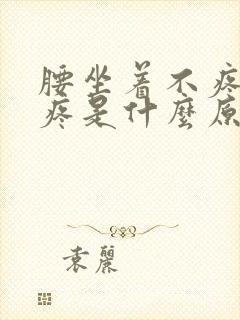 腰坐着不疼
疼是什麼原
袁麗